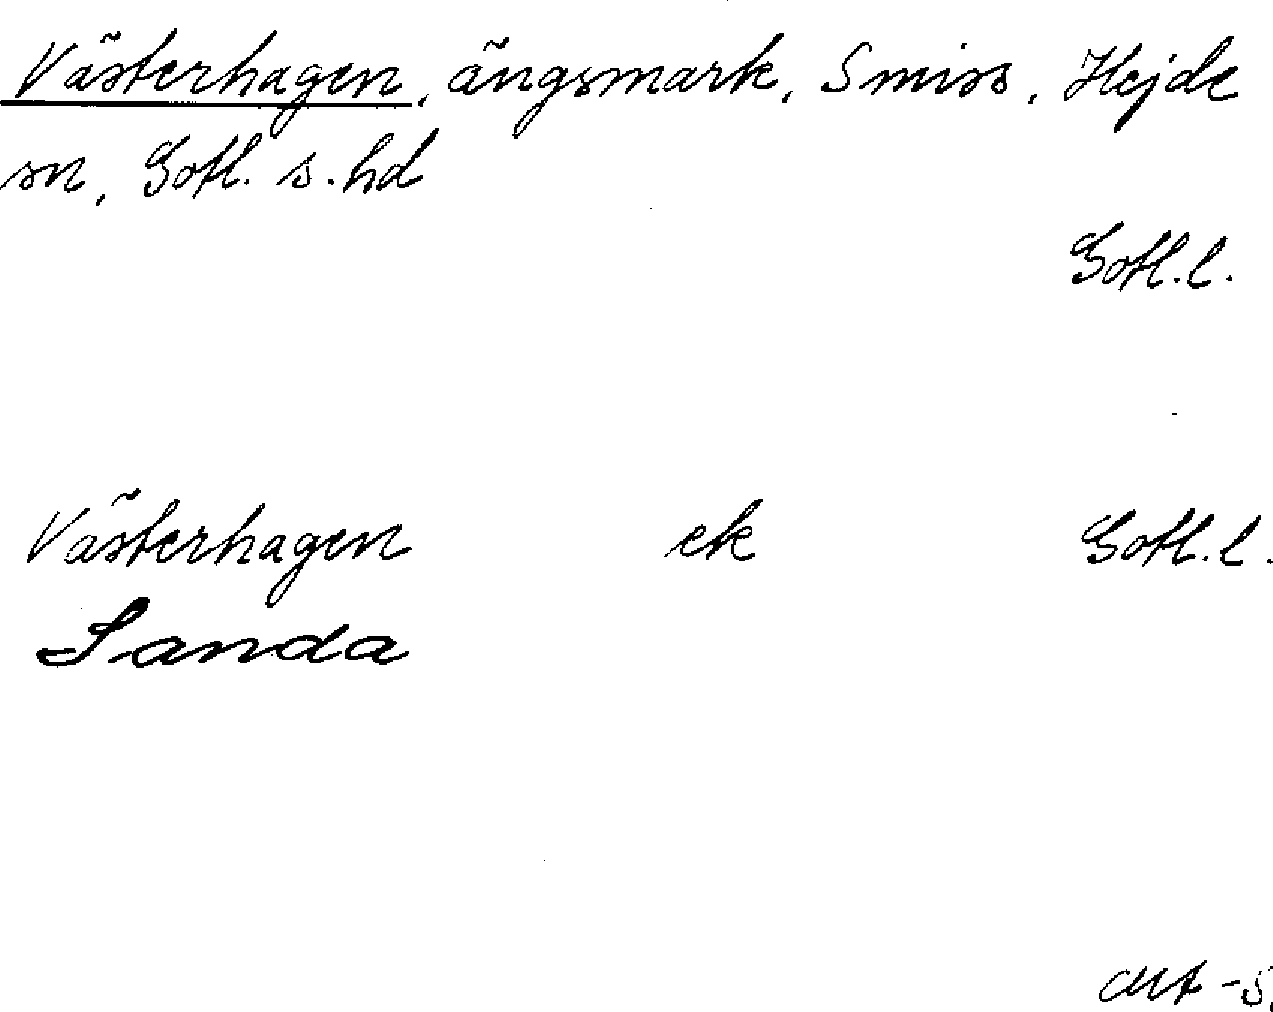 Västerhagen, ängsmark, Smiss, Hejde
sn, Gotl. s. hd
Gotl.l.
Västerhagen ek Gotl.l.
Sanda